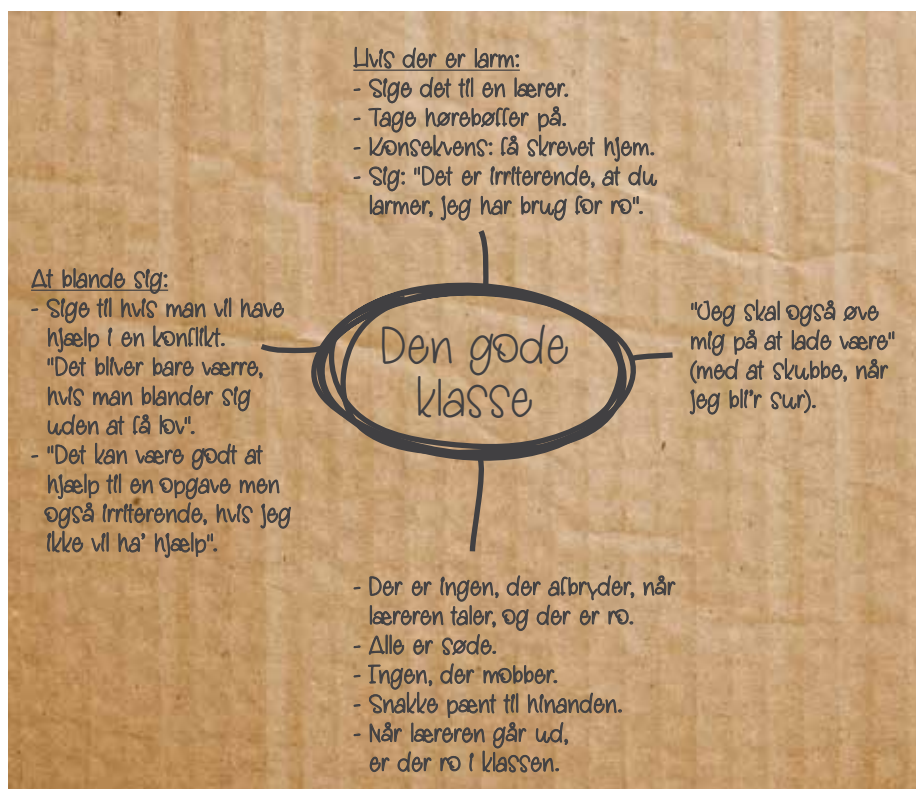 Hvis der er larm:
- Sige det til en lærer.
- Tage hørebøffer på.
- Konsekvens: få skrevet hjem.
- Sig: "Det er irriterende, at du
larmer, jeg har brug for ro".
At blande sig:
- Sige til hvis man vil have
hjælp i en konflikt.
"Det bliver bare værre,
hvis man blander sig
uden at få lov".
- "Det kan være godt at
hjælp til en opgave men
også irriterende, hvis jeg
ikke vil ha' hjælp".
Den gode
klasse
"Jeg skal også øve
mig på at lade være"
(med at skubbe, når
jeg bli'r sur).
- Der er ingen, der afbryder, når
læreren taler, og der er ro.
- Alle er søde.
- Ingen, der mobber.
- Snakke pænt til hinanden.
- Når læreren går ud,
er der ro i klassen.